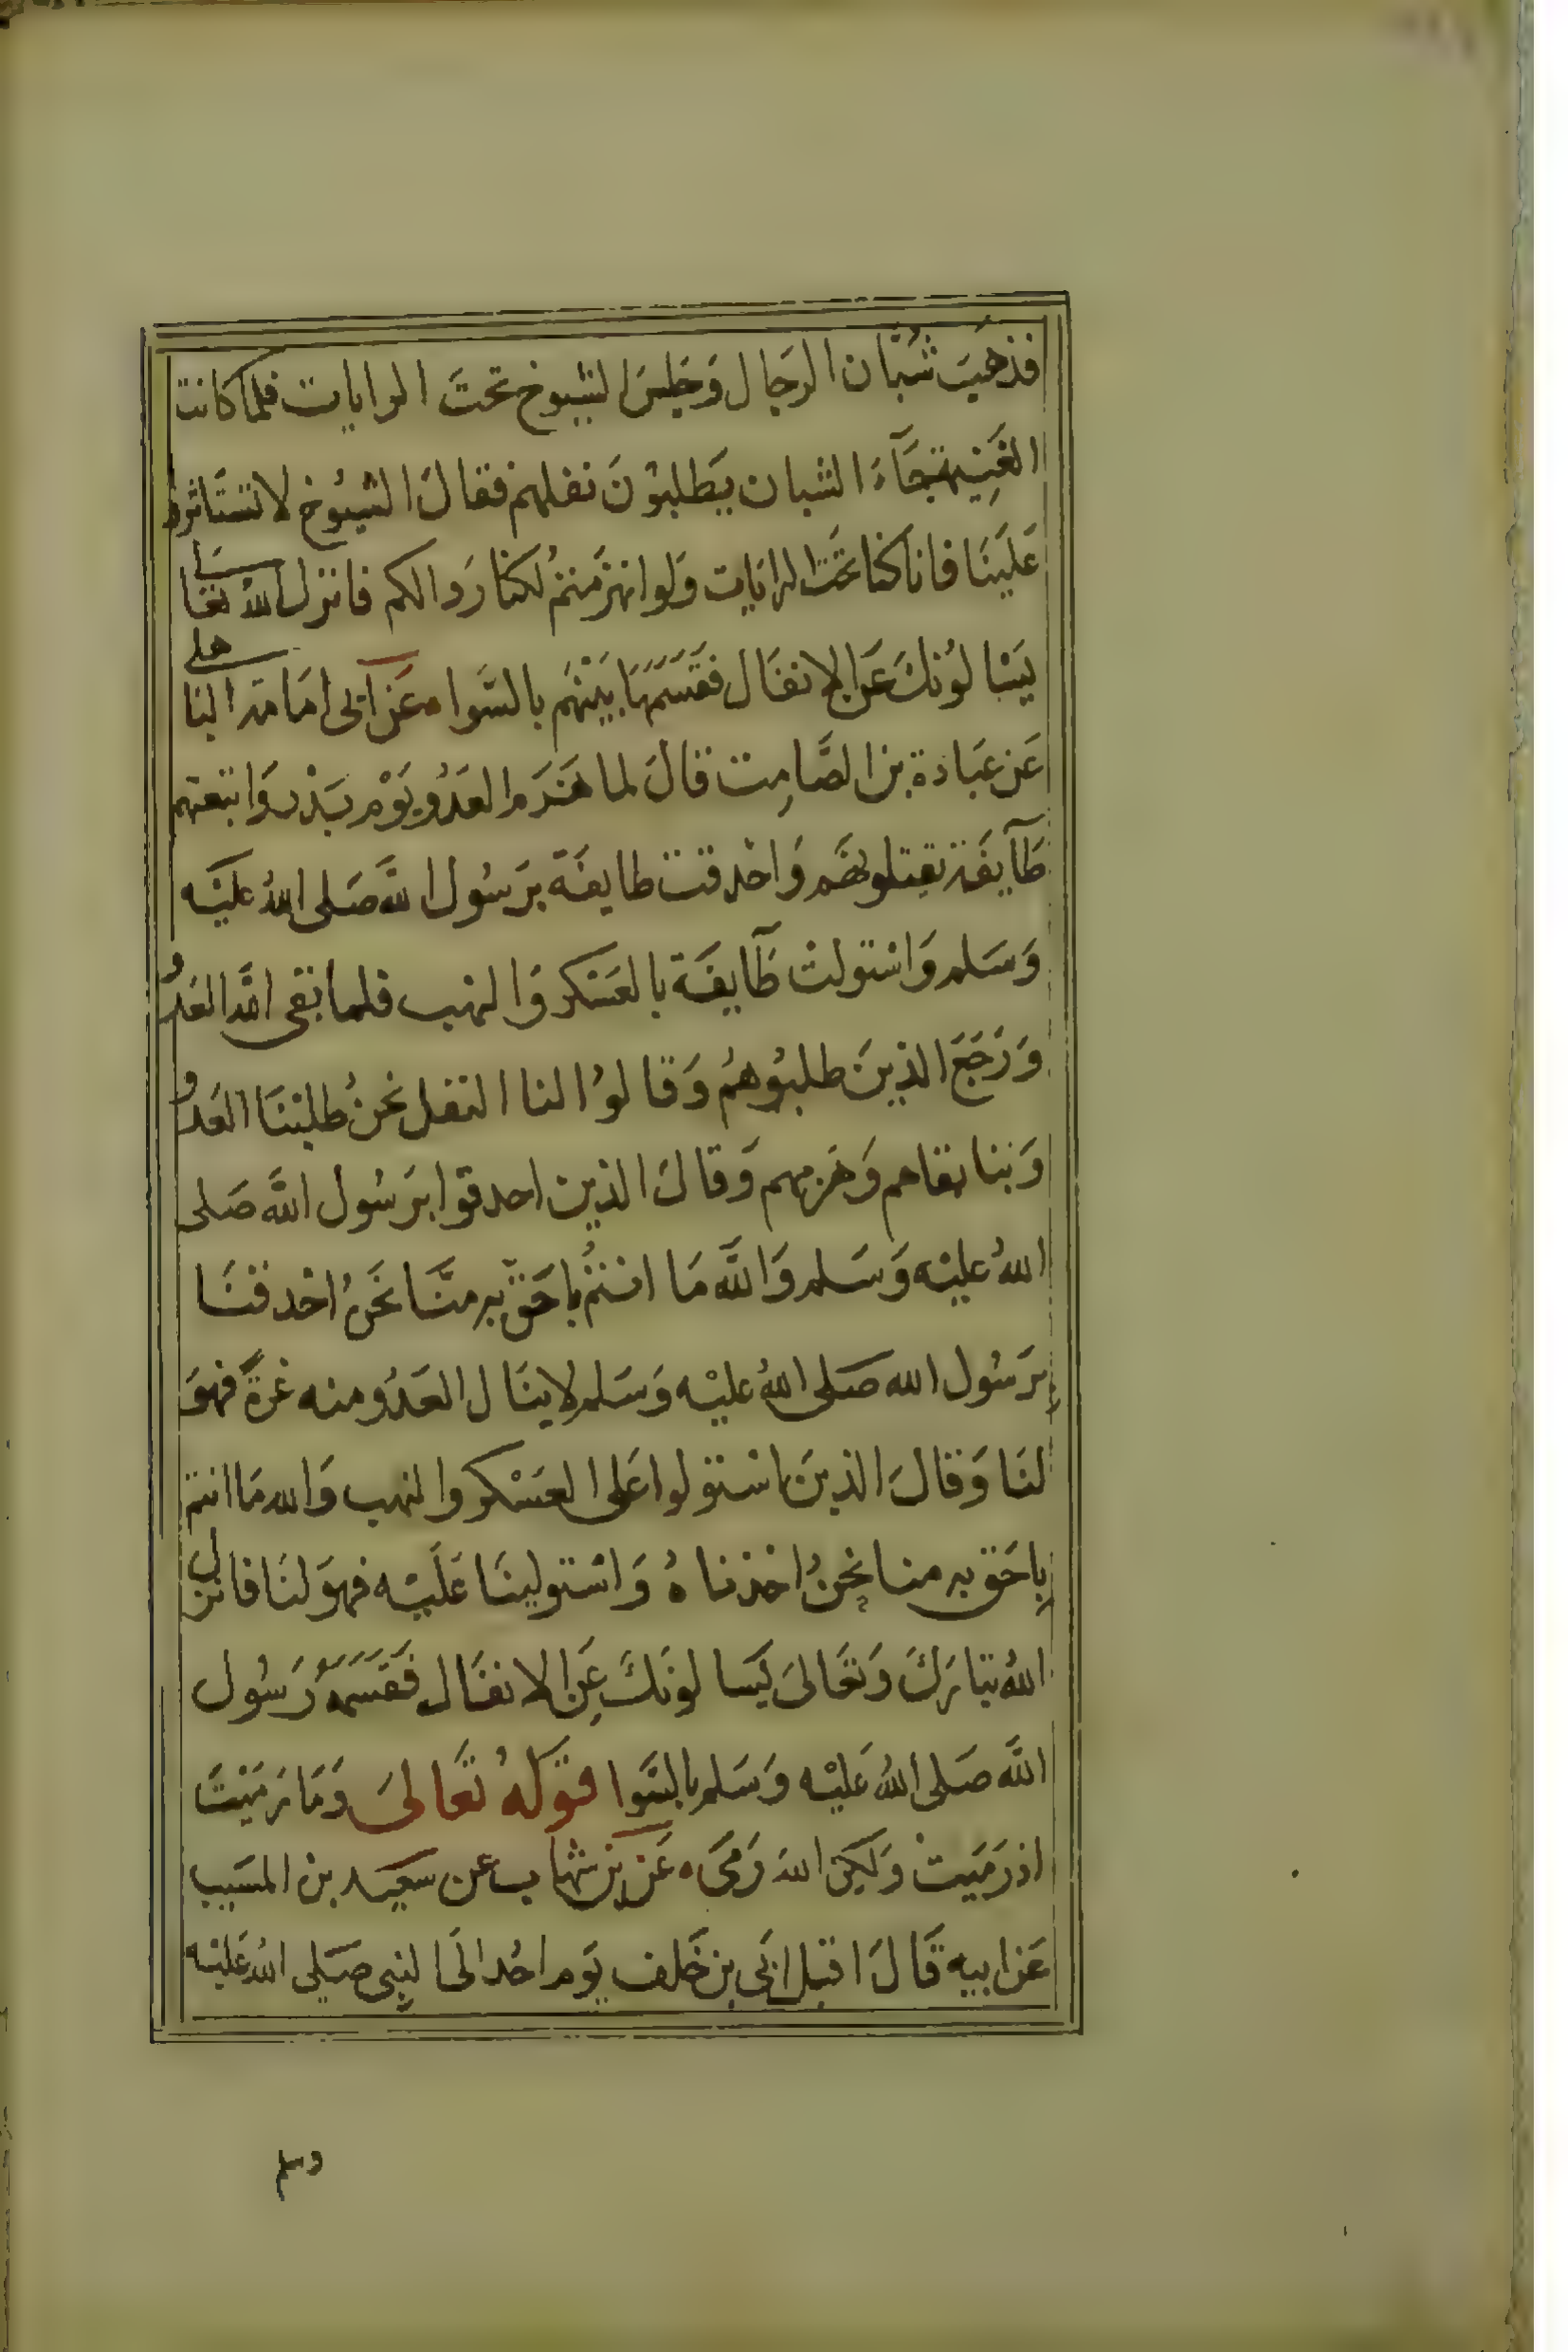 فذهَبَ شُبَّان الرجَال وَجَلسَ الشيوخ تحتَ الرايات فلما كانت
الغَنِيمة جَآءَ الشبان يَطلبوْنَ نفلهم فقالَ الشيُوخ لا تسْتَاثروا
عَليَنَا فانا كنا تحَتَ الرايات وَلو انهزَمتمُ لكنا رَدا لكم فانزل الله تعَالىَ
يَسْا لوُنكَ عَن الانفَال فقَسَمَهَا بَيْنَهَم بالسَّوا عَن ابى امَامَة الباهلى
عَن عبَادة بن الصَّامِت قالَ لما هَزَم العَدُو يَوْم بَدْر وَاتبعتهم
طَآيفَة يقتلونهَم وَاحْدقت طايفَة برَسُول اللهَ صَلى اللهُ عليَه
وَسَلم وَاسْتولتْ طَآيفَة بالعَسْكر وَالنهب فلما نفى اللهَ العَدُو
وَرَجَعَ الذينَ طلبُوهمُ وَقالوُا لنا النفل نحنُ طلبْنَا العَدُو
وَبنا نفاهم وَهَزمهم وَقالَ الذين احدقوا برَسُول اللهَ صَلى
اللهُ عليْه وَسَلم وَاللهَ مَا انتمُ باحَقّ به منَّا نحَنُ احْدقنَا
برَسُول الله صَلى اللهُ عليْه وَسَلم لا ينَال العَدُو منه غرةً فهوَ
لنَا وَقالَ الذينَ اسْتولوا عَلى العَسْكر والنهب وَالله مَا انتم
باحَق به منا نحنُ اخذناهُ وَاسْتولينَا عَليَه فهوَ لنَا فانزل
اللهُ تبَارَكَ وَتعَالىَ يَسالونَكَ عَنِ الانفَال فقَسَمَهُ رَسُول
اللهَ صَلى اللهُ عَليْه وَسَلم بالسَّوا قوَلهُ تعَالىَ وَمَا رَمَيْتَ
اذ رَمَيتْ وَلكِن اللهَ رَمَى عَن بن شهاب عن سَعيَد بن المسَيب
عَن ابيه قَالَ اقبَل ابَي بن خَلف يَوم احُد الىَ النبِى صَلي اللهُ عَليْه
وسلم